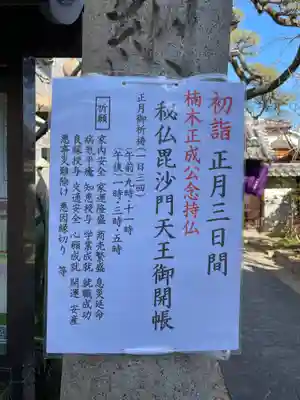 初詣 正月三日間
楠木正成公念持仏
秘仏毘沙門天王御開帳
正月御祈祷(一日三回)
午前・九時・十一時
午後・一時・三時・五時
祈願
家内安全 家運隆盛 商売繁盛 息災延命
病気平癒 知恵授与 学業成就 就職成功
良縁授与 交通安全 心願成就 開運 安産
悪事災難除け 悪因縁切り 等